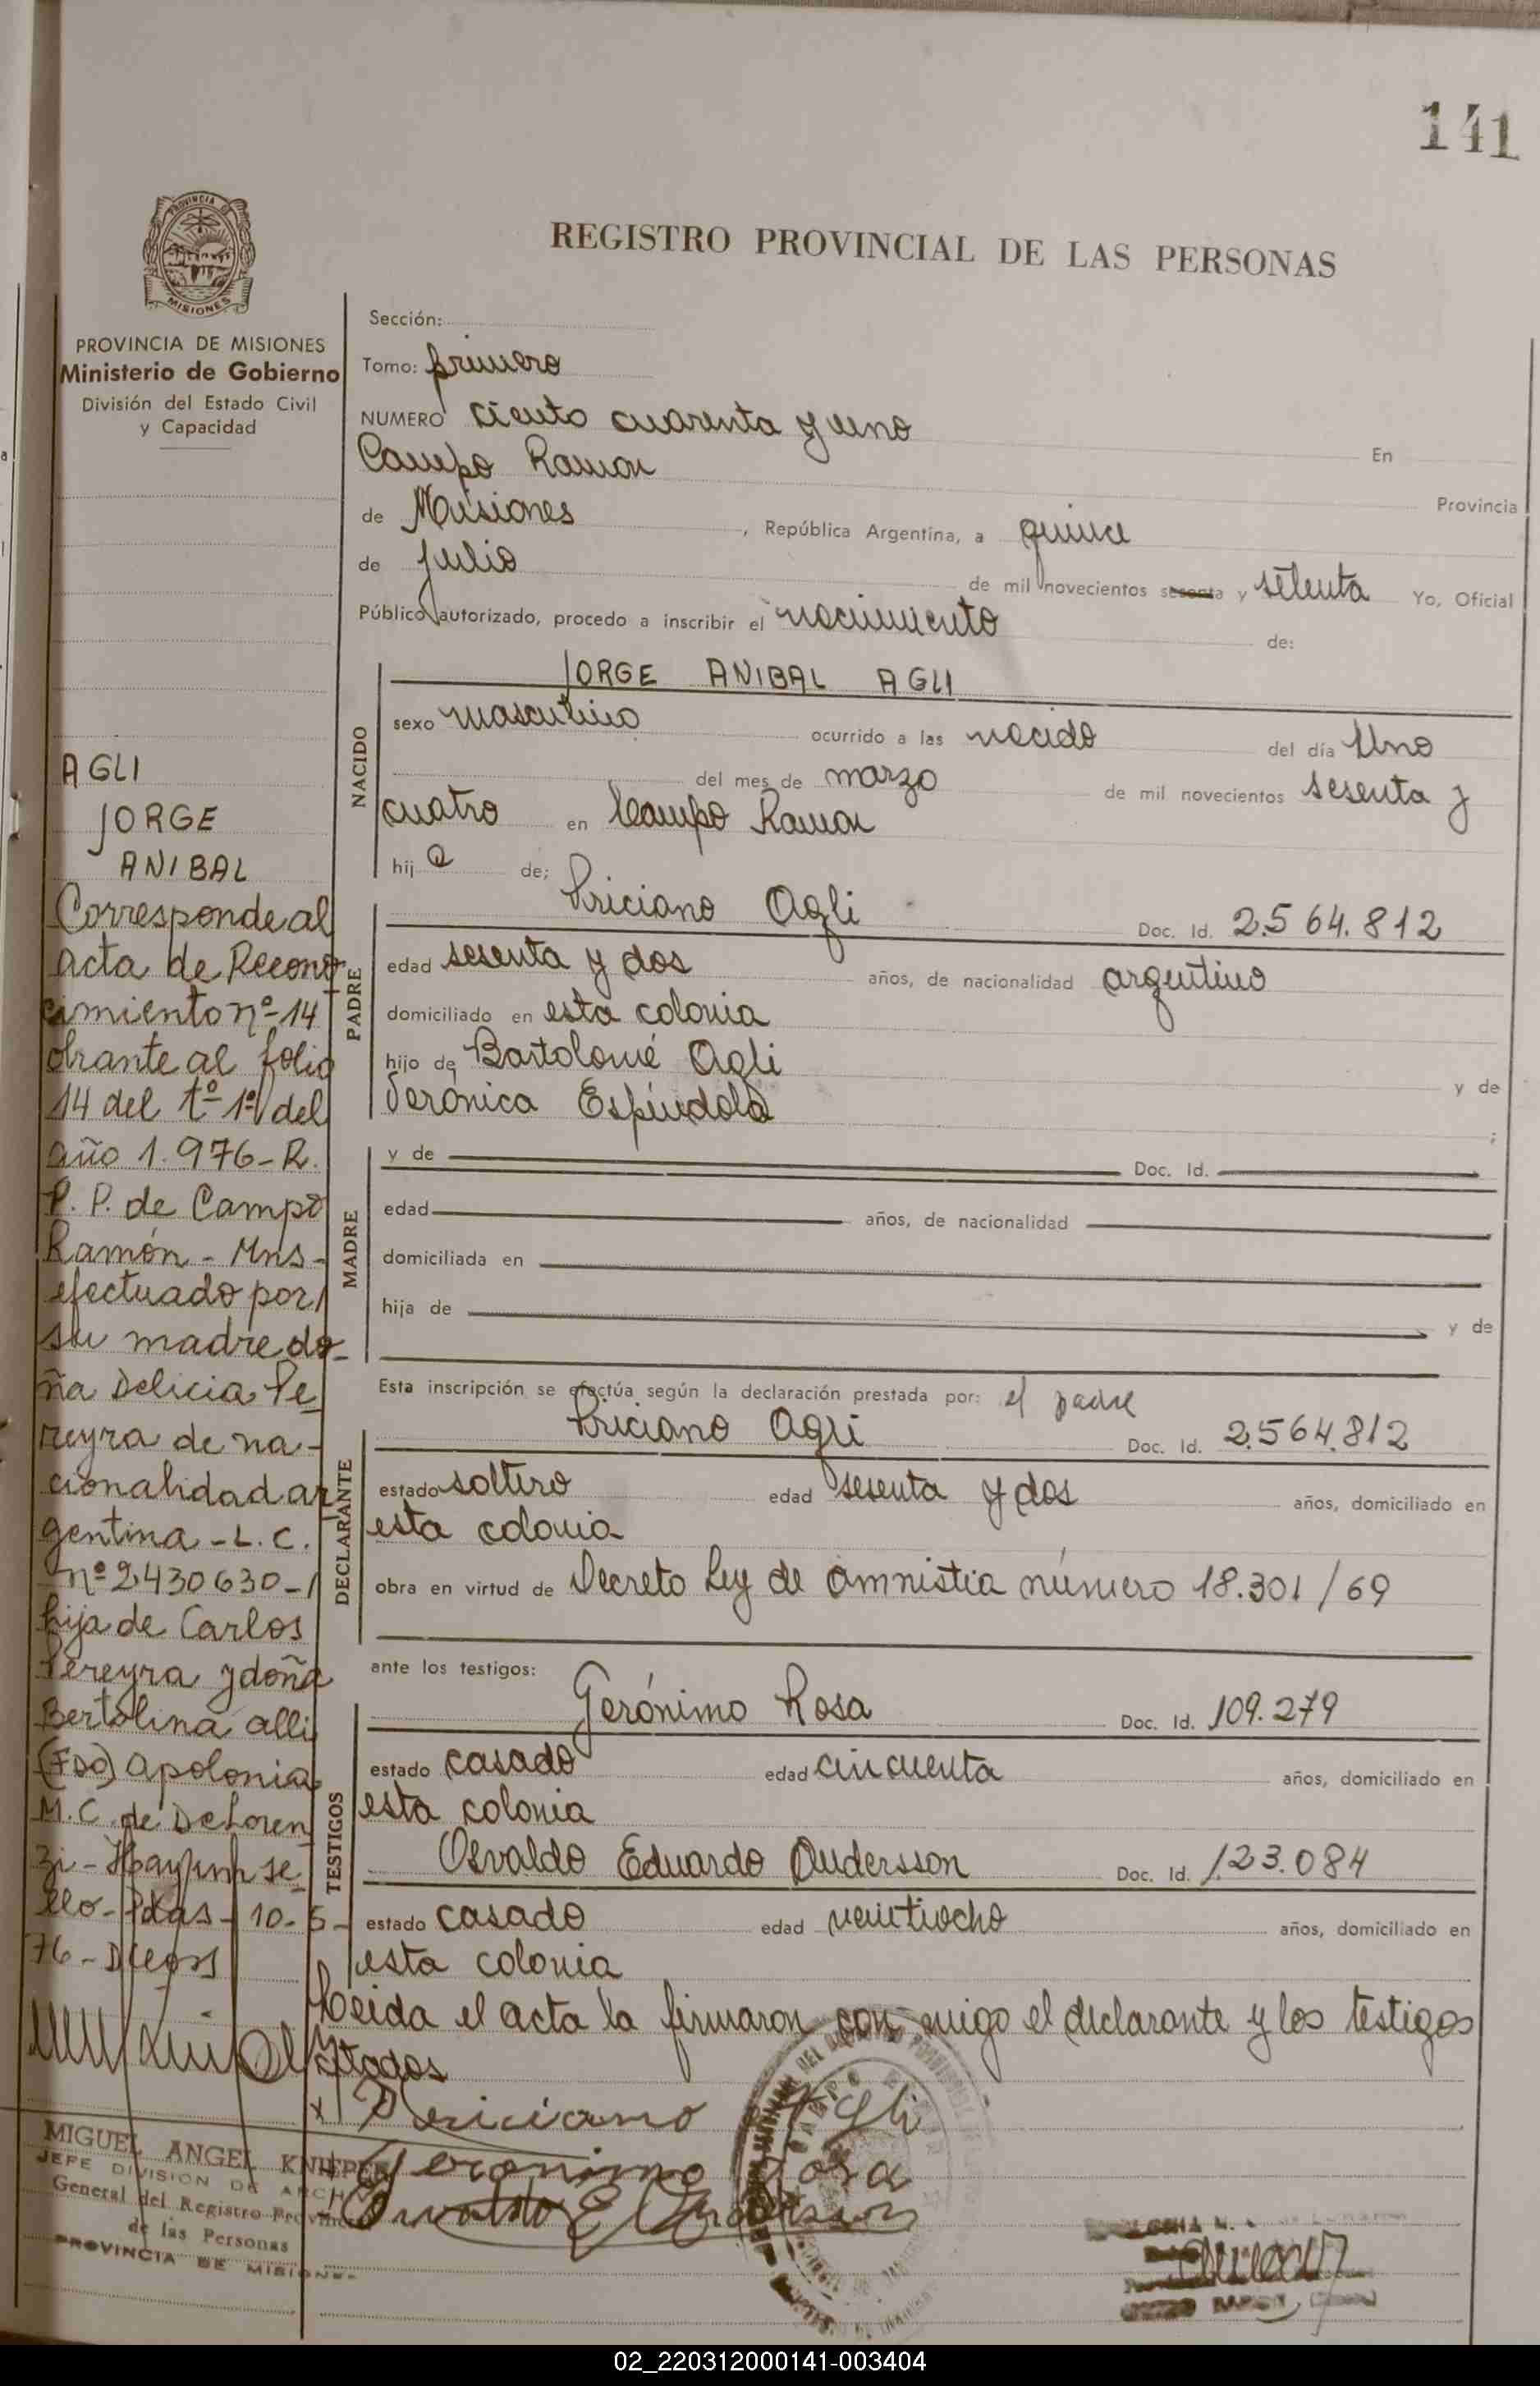 141
REGISTRO PROVINCIAL DE LAS PERSONAS
PROVINCIA DE MISIONES
PROVINCIA DE MISIONES
Ministerio de Gobierno
División del Estado Civil
y Capacidad
Sección:
Tomo: primero
NUMERO ciento cuarenta y uno En
Campo Ramon Provincia
de Misiones, República Argentina, a quince
de Julio de mil novecientos sesenta y setenta Yo, Oficial
Público autorizado, procedo a inscribir el nacimiento de:
NACIDO
JORGE ANIBAL AGLI
sexo masculino ocurrido a las nacido del día Uno
del mes de marzo de mil novecientos sesenta y
cuatro en Campo Ramon
hij o de;
PADRE
Priciano Agli Doc. Id. 2.564.812
edad sesenta y dos años, de nacionalidad argentino
domiciliado en esta colonia
hijo de Bartolomé Agli y de
Verónica Espíndola ;
MADRE
y de Doc. Id.
edad años, de nacionalidad
domiciliada en
hija de y de
Esta inscripción se efectúa según la declaración prestada por: el padre
DECLARANTE
Priciano Agli Doc. Id. 2.564.812
estado soltero edad sesenta y dos años, domiciliado en
esta colonia
obra en virtud de Decreto Ley de amnistia número 18.301/69
ante los testigos:
TESTIGOS
Gerónimo Rosa Doc. Id. 109.279
estado casado edad cincuenta años, domiciliado en
esta colonia
Osvaldo Eduardo Andersson Doc. Id. 123.084
estado casado edad veintiocho años, domiciliado en
esta colonia
Leida el acta la firmaron con migo el declarante y los testigos
citados
x Priciano Agli
Geronimo Rosa
Osvaldo E Andersson
AGLI
JORGE
ANIBAL
Corresponde al
acta de Recono
cimiento nº 14
obrante al folio
14 del tº 1º del
año 1.976-R.
P. P. de Campo
Ramón - Mns-
efectuado por
su madre do-
ña Delicia Pe
reyra de na-
cionalidad ar
gentina - L. C.
nº 2430630-
hija de Carlos
Pereyra y doña
Bertolina alli
(FDO) Apolonia
M. C. de DeLoren
zi - Hay un se
llo - Pdas - 10-5-
76-
MIGUEL ANGEL KNIEPER
JEFE DIVISION DE ARCH
General del Registro Provincial
de las Personas
PROVINCIA DE MISIONES
02_220312000141-003404